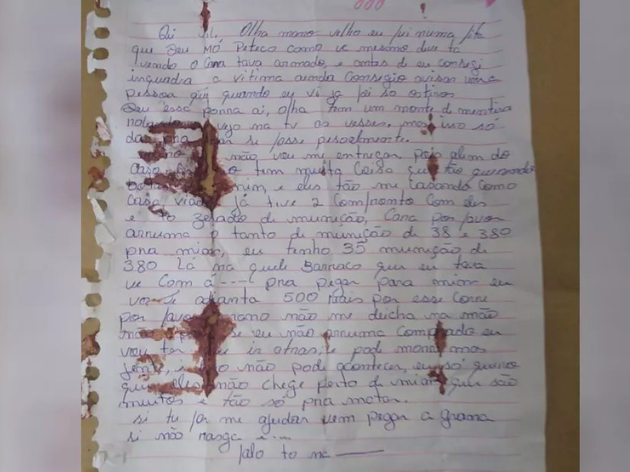 Oi Olha mano velho eu fui numa fita
que Deu Mó Peteco como ve mesmo dise ta
vendo O Cara tava armado, e antes de eu consegi
inquadra a vitima ainda Consegio avisar
pessoa que quando eu vi ja foi so estivos
Deu essa porra ai, olha tem um monte de mentira
vejo na tv as vesses, mas isso só
da pra si fosse pesoalmente.
não vou me entregar pois alem do
caso tem muita Coisa que tão querendo
mim, e eles tão me Casando Como
Casa, viado já tive 2 Comfronto Com eles
e to zerado de munição, Cara por favor
arruma o tanto de munição de 38 e 380
pra mim, eu tenho 35 munição de
380 Lá na quele Barraco que eu tava
ve Com a ---- pra pegar para mim eu
adianta 500 Reais por esse Corre
por favor mano não me deicha na mão
não se eu não arruma Comprado eu
vou ter ir atras, e pode morre mas
jente, e não pode acontecer, eu só quero
que eles não chege perto de mim que são
muitos e tão só pra matar.
si tu for me ajudar vem pegar a grana
si não rasga e...
falo to na